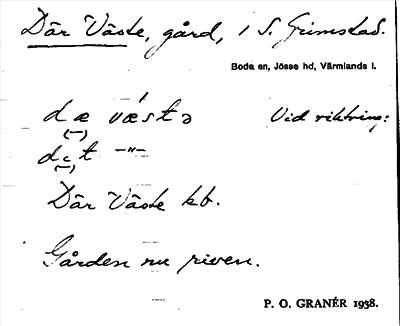 Där Väste, gård, i S. Grimstad.
Boda en, Jösse hd, Värmlands l.
dæ vǽstə Vid riktning:
(–)
det –"–
(–)
Där Väste kb.
Gården nu riven.
P. O. GRANÉR 1938.